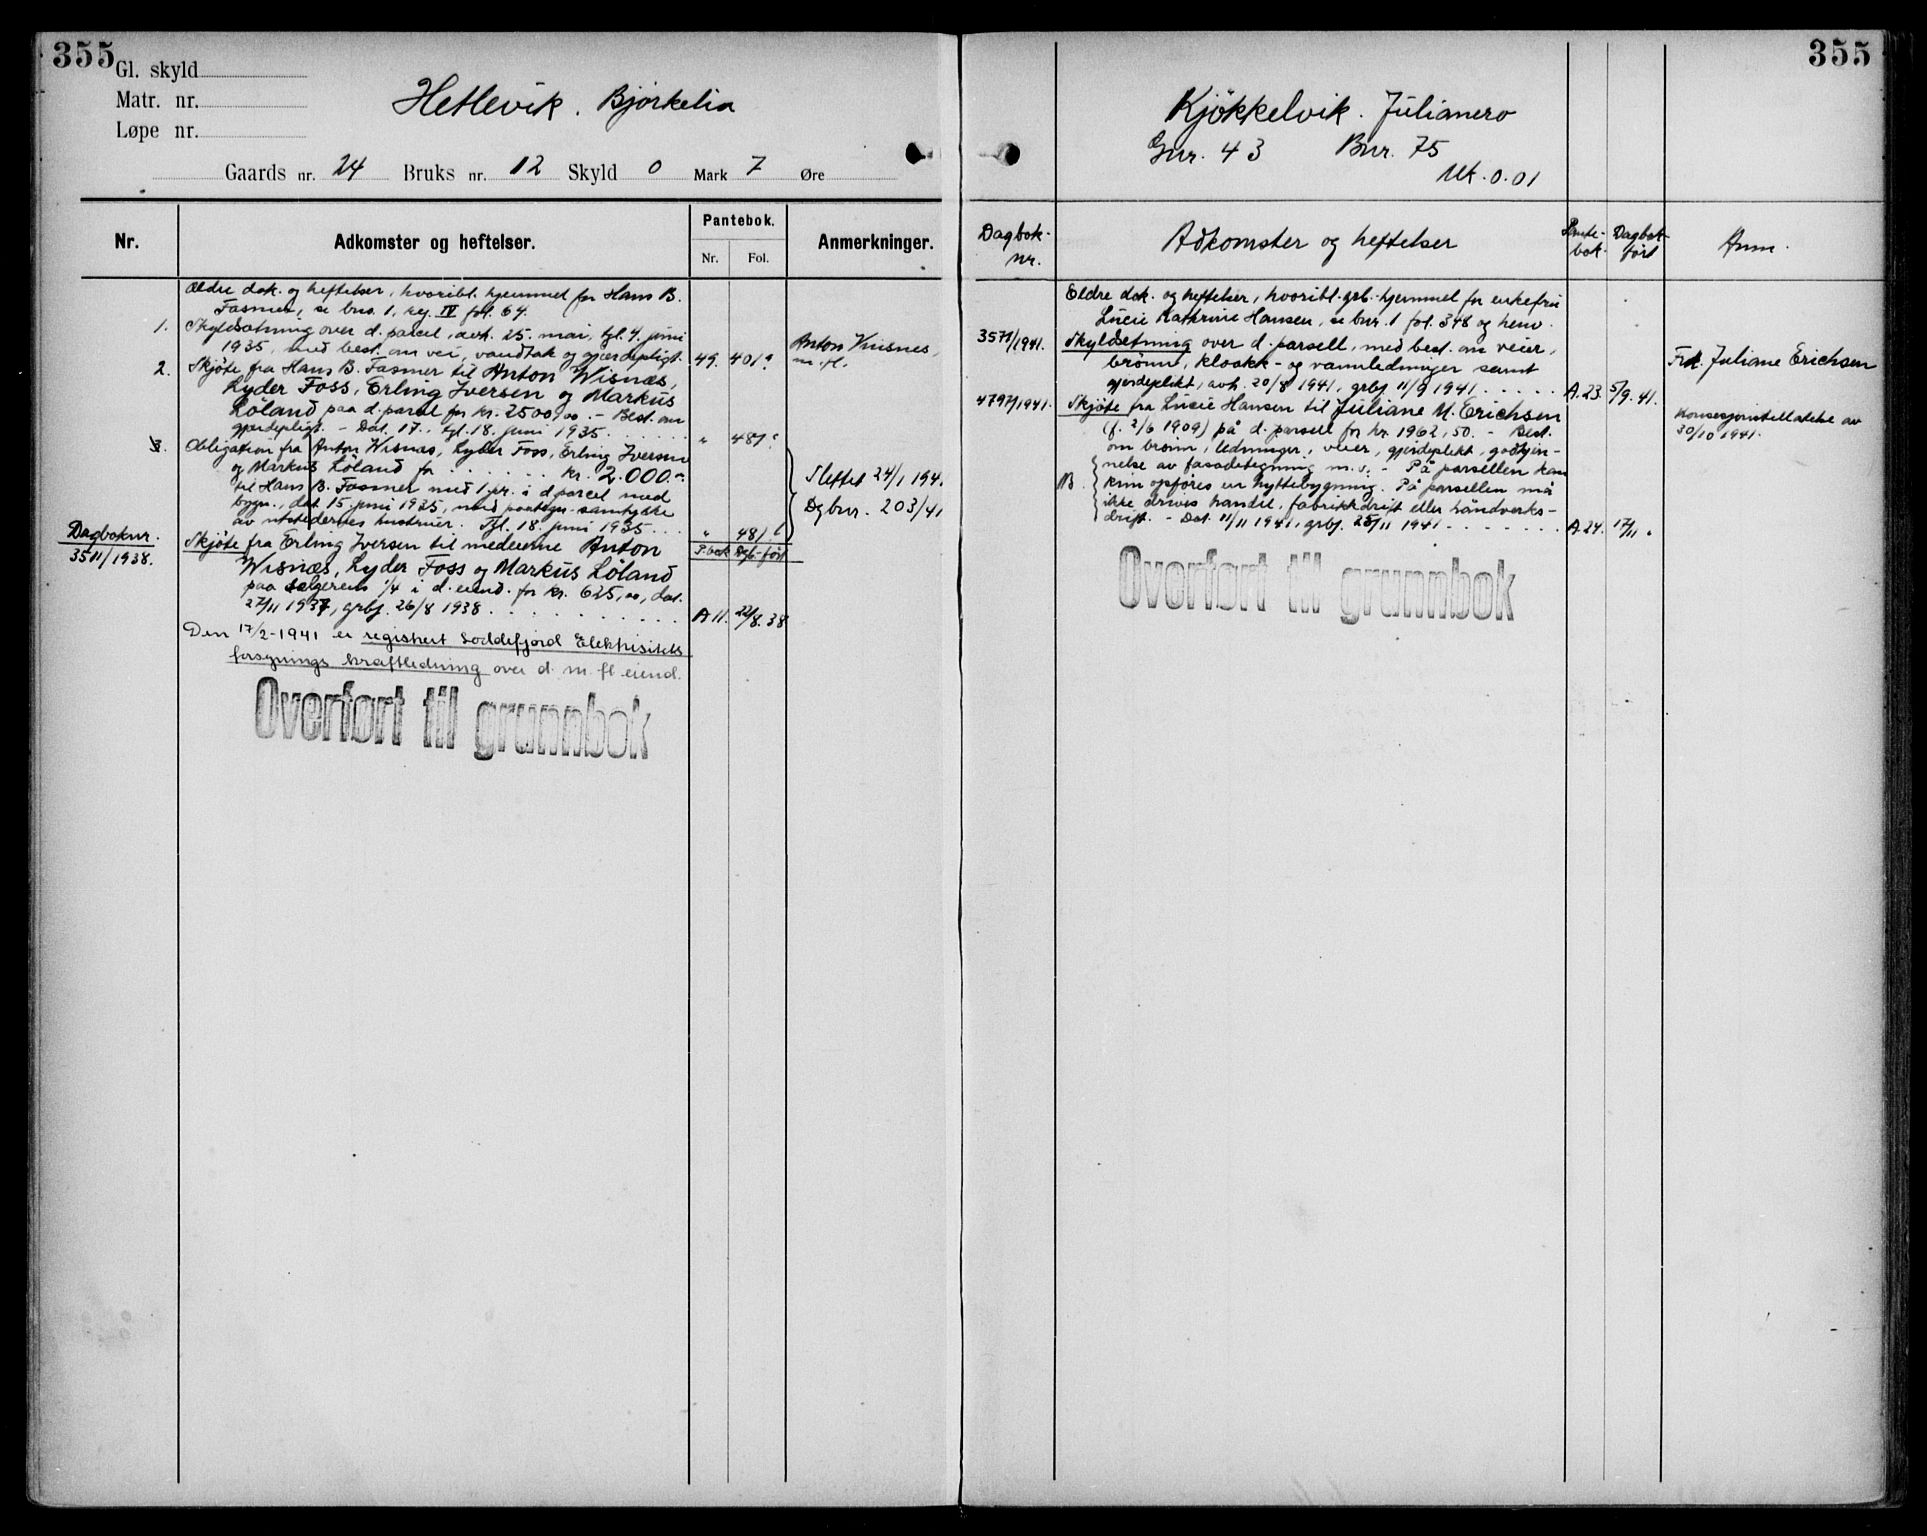 355
Gl. skyld
Matr. nr.
Løpe nr.
Hetlevik. Bjørkelia
Gaards nr. 24 Bruks nr. 12 Skyld 0 Mark 7 Øre
Nr.
Adkomster og heftelser.
Pantebok.
Nr. Fol.
Anmerkninger.
Ældre dok. og heftelser, hvoribl. hjemmel for Hans B.
Fasmer, se bno. 1, reg. IV fol. 64.
1. Skyldsetning over d. parcel, avh. 25. mai, tgl. 4. juni
1935, med best. om vei, vandtak og gjærdepligt. 49. 401
Anton Visnes,
m. fl.
2. Skjøte fra Hans B. Fasmer til Anton Wisnæs,
Lyder Foss, Erling Iversen og Markus
Löland paa d. parcel for kr. 2500,00. - Best. om
gjerdepligt. - Dat. 17., tgl. 18. juni 1935. " 481
3. Obligation fra Anton Wisnæs, Lyder Foss, Erling Iversen
og Markus Löland for kr. 2.000.-
til Hans B. Fasmer med 1 pr. i d parcel med
bygn., dat. 15. juni 1935, med paategn. samtykke
av utstedernes hustruer. Tgl. 18. juni 1935. " 481
Slettet 24/1 194.
Dgbnr. 203/41
Dagboknr. P.bok Dgb.ført
3511/1938. Skjøte fra Erling Iversen til medeierne Anton
Wisnæs, Lyder Foss og Markus Löland
paa selgerens 1/4 i d. eiend. for kr. 625,00, dat.
27/11 1937, grbf. 26/8 1938. A 11. 22/8. 38
Den 17/2-1941 er registrert Loddefjord Elektrisitets
forsynings kraftledning over d. m. fl eiend.
Overført til grunnbok
355
Kjökkelvik. Julianero
Gnr. 43 Bnr. 75
Mk. 0.01
Dagbok-
nr.
Adkomster og heftelser
Pante-
bok.
Dagbok
ført
Anm.
Eldre dok. og heftelser, hvoribl. grb. hjemmel for enkefru
Lucie Kathrine Hansen, se bnr. 1 fol. 348 og henv.
3571/1941. Skyldsetning over d. parsell, med best. om veier,
brönn, kloakk- og vannledninger samt
gjerdeplikt, avh. 20/8 1941, grbf 11/9 1941. A. 23. 5/9. 41.
Frk. Juliane Erichsen
4797/1941. Skjöte fra Lucie Hansen til Juliane M. Erichsen
(f. 2/6 1909) på d. parsell for kr. 1962,50. - Best.
om brönn, ledninger, veier, gjerdeplikt, godkjen-
nelse av fasadetegning m.v. - På parsellen kan
B. kun opföres en hyttebygning. På parsellen må
ikke drives handel, fabrikkdrift eller håndverks-
drift. - Dat. 11/11 1941, grbf. 25/11 1941. A. 24. 17/11 "
Konsesjonstillatelse av
30/10 1941.
Overført til grunnbok